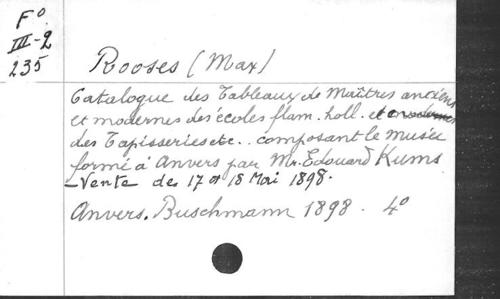 Fº
III-2
235
Rooses (Max)
Catalogue des Tableaux de Maîtres anciens
et modernes des écoles flam. holl. et
des Tapisseries etc.. composant le Musée
formé à Anvers par Mr. Edouard Kums
- Vente des 17 et 18 Mai 1898.
Anvers. Buschmann 1898. 4º